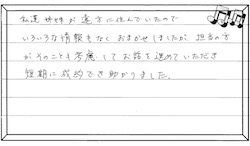 私達姉妹が遠方に住んでいたので
いろいろな情報もなくおまかせしましたが、担当の方
がそのことも考慮してお話を進めていただき
短期に成約でき助かりました。